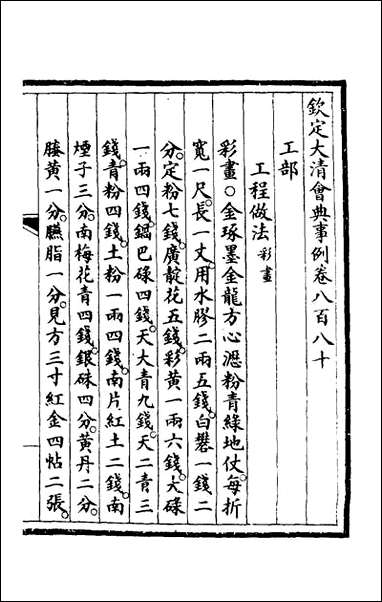 欽定大清會典事例卷八百八十
工部
工程做法彩畫
彩畫○金琢墨金龍方心瀝粉青綠地仗。每折
寬一尺。長一丈。用水膠二兩五錢。白礬一錢二
分。定粉七錢。廣靛花五錢。彩黃一兩六錢。大碌
一兩四錢。鍋巴碌四錢。天大青九錢。天二青三
錢。青粉四錢。土粉一兩四錢。南片紅土二錢。南
煙子三分。南梅花青四錢。銀硃四分。黃丹二分。
藤黃一分。臙脂一分。見方三寸紅金四帖二張。